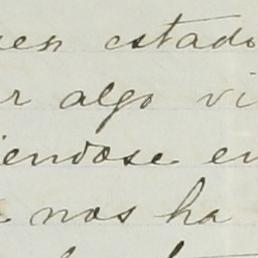 uen estado
r algo vi
iendose en
nos ha